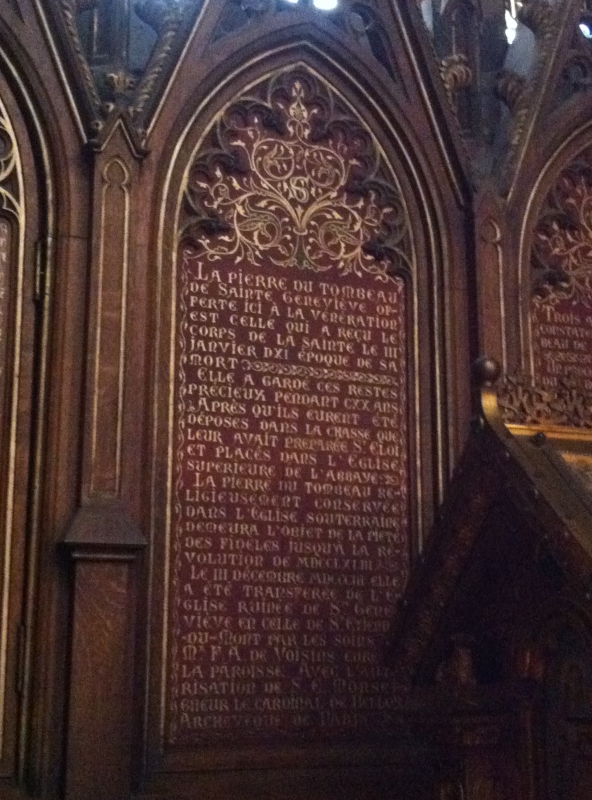 S
LA PIERRE DU TOMBEAU
DE SAINTE GENEVIÈVE OF-
FERTE ICI À LA VÉNÉRATION
EST CELLE QUI A REÇU LE
CORPS DE LA SAINTE LE III
JANVIER DXI ÉPOQUE DE SA
MORT
ELLE A GARDÉ CES RESTES
PRÉCIEUX PENDANT CXX ANS
APRÈS QU'ILS EURENT ÉTÉ
DÉPOSÉS DANS LA CHASSE QUE
LEUR AVAIT PRÉPARÉE ST ELOI
ET PLACÉS DANS L'ÉGLISE
SUPÉRIEURE DE L'ABBAYE
LA PIERRE DU TOMBEAU RE-
LIGIEUSEMENT CONSERVÉE
DANS L'ÉGLISE SOUTERRAINE
DEMEURA L'OBJET DE LA PIÉTÉ
DES FIDÈLES JUSQU'À LA RÉ-
VOLUTION DE
LE III DÉCEMBRE MDCCCIII ELLE
A ÉTÉ TRANSFÉRÉE DE L'É-
GLISE RUINÉE DE STE GENE
VIÈVE EN CELLE DE ST ETIENNE
-DU-MONT PAR LES SOINS
MR F. A. DE VOISINS CURÉ
LA PAROISSE AVEC L'AUTO
RISATION DE S. E. MONSEI
GNEUR LE CARDINAL DE BELLOY
ARCHEVÊQUE DE PARIS
TROIS
CONSTATE
BEAU DE